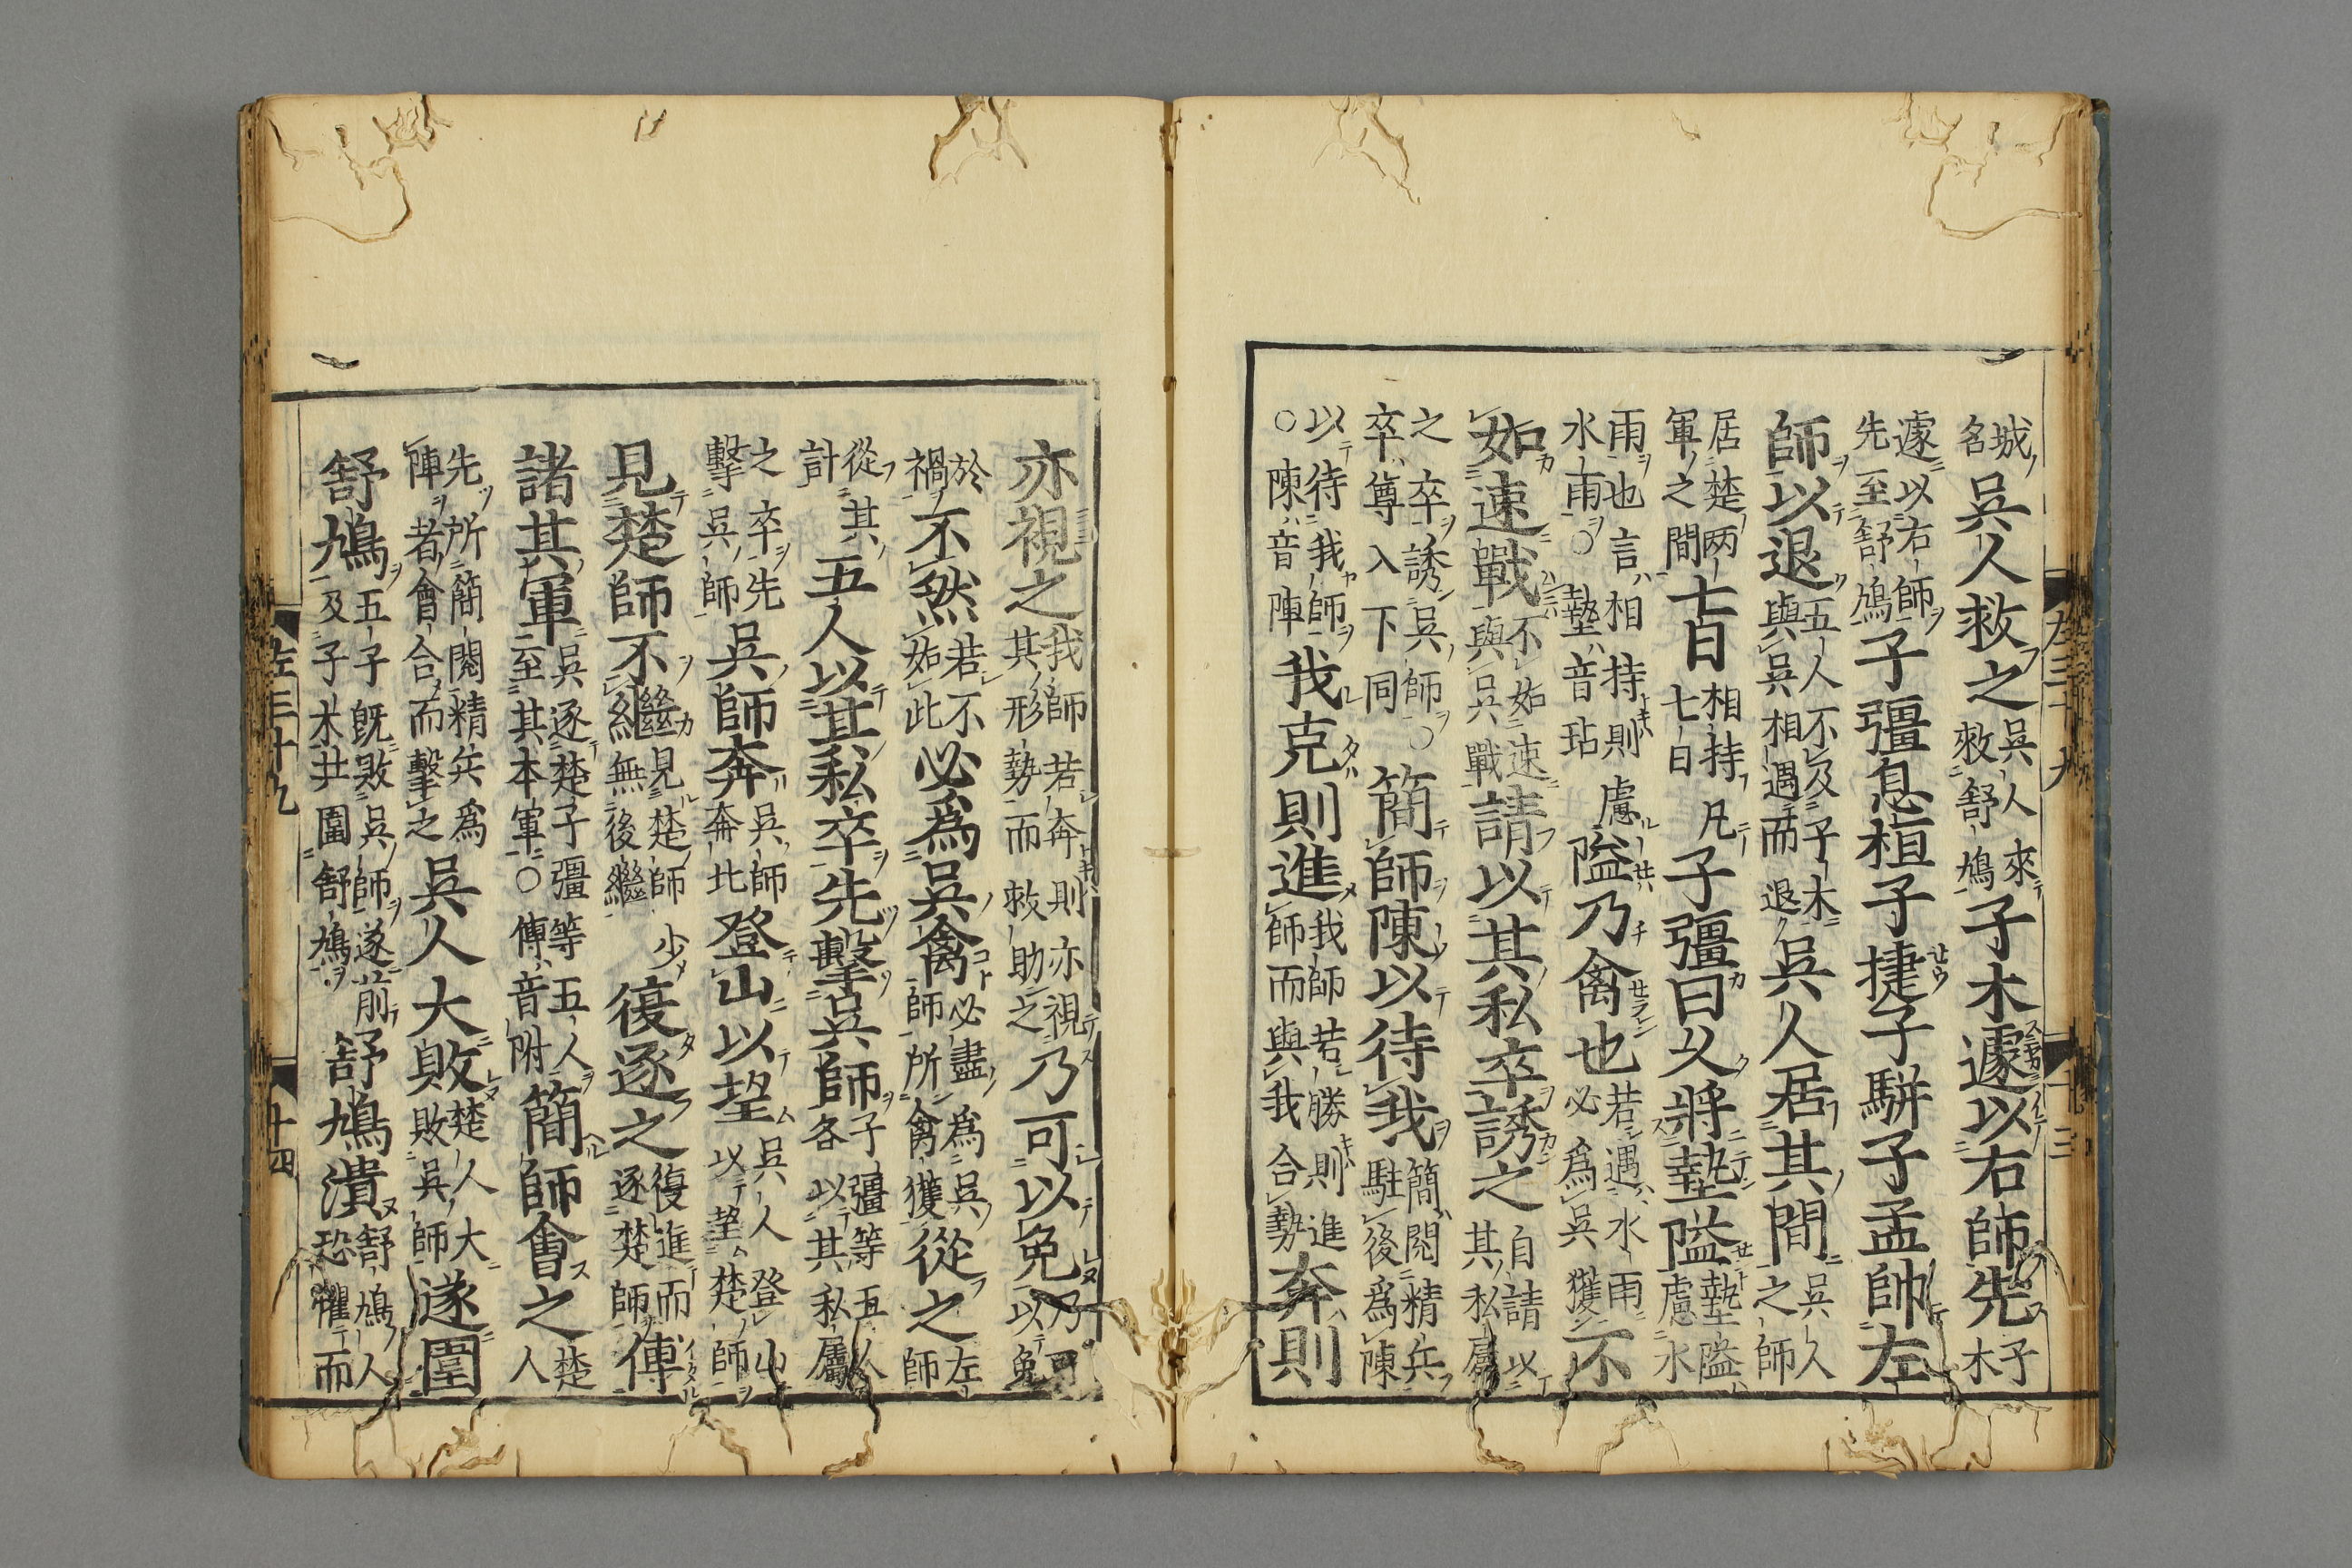 左三十九 十三
城名吳人救之吳人來救舒鳩子木遽以右師先子木
遽以右師先至舒鳩子彊息桓子捷子駢子孟帥左
師以退五人不及子木與吳相遇而退吳人居其間吳人之師
居楚两軍之間七日相持凡七日子彊曰久將墊隘墊隘慮水
雨也言相持則慮水雨○墊音玷隘乃禽也若遇水雨必爲吳獲不
如速戰不如速與吳戰請以其私卒誘之自請以其私屬
之卒誘吳師○卒尊入下同簡師陳以待我簡閱精兵駐後爲陳
以待我師○陳音陣我克則進我師若勝則進師而與我合勢奔則
亦視之我師若奔則亦視其形勢而救助之乃可以免乃可以免
於禍不然若不如此必爲吳禽必盡爲吳師所禽獲從之左師
從其計五人以其私卒先擊吳師子彊等五人各以其私屬
之卒先擊吳師吳師奔吳師奔北登山以望吳人登山以望楚師
見楚師不繼見楚師少無後繼復逐之復進而逐楚師傅
諸其軍吳逐楚子彊等五人至其本軍○傅音附簡師會之楚人
先所簡閱精兵爲陣者會合而擊之吳人大敗楚人大敗吳師遂圍
舒鳩五子既敗吳師遂前及子木共圍舒鳩舒鳩潰舒鳩人恐懼而
左三十九 十四